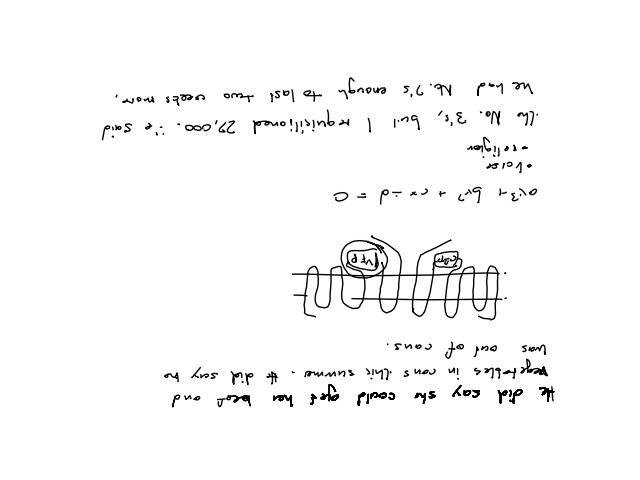 He did say she could get her beef and
vegetables in cans this summer. He did say he
was out of cans.
ax³ + bx² + cx + d = 0
• Voice
• religion
the No. 3's, but I requisitioned 27,000. He said
he had No. 2's enough to last two weeks more.